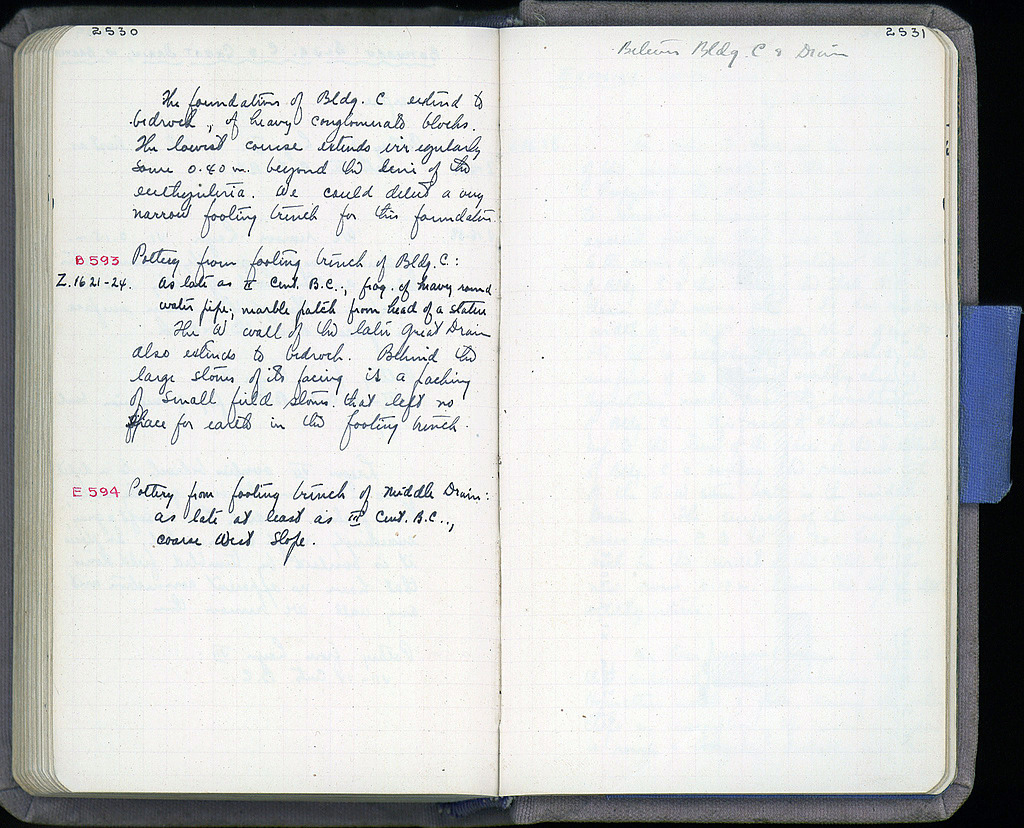 2530
The foundations of Bldg. C extend to
bedrock, of heavy conglomerate blocks.
The lowest course extends irregularly
some 0.40 m. beyond the line of the
euthynteria. We could detect a very
narrow footing trench for this foundation.
B 593 Pottery from footing trench of Bldg. C:
Z.1621-24. as late as II Cent. B.C., frag. of heavy round
water pipe, marble patch from head of a statue
The W wall of the later Great Drain
also extends to bedrock. Behind the
large stones of its facing is a packing
of small field stones that left no
space for earth in the footing trench.
E 594 Pottery from footing trench of Middle Drain:
as late at least as III Cent. B.C.,
coarse West Slope.
2531
Between Bldg. C & Drain